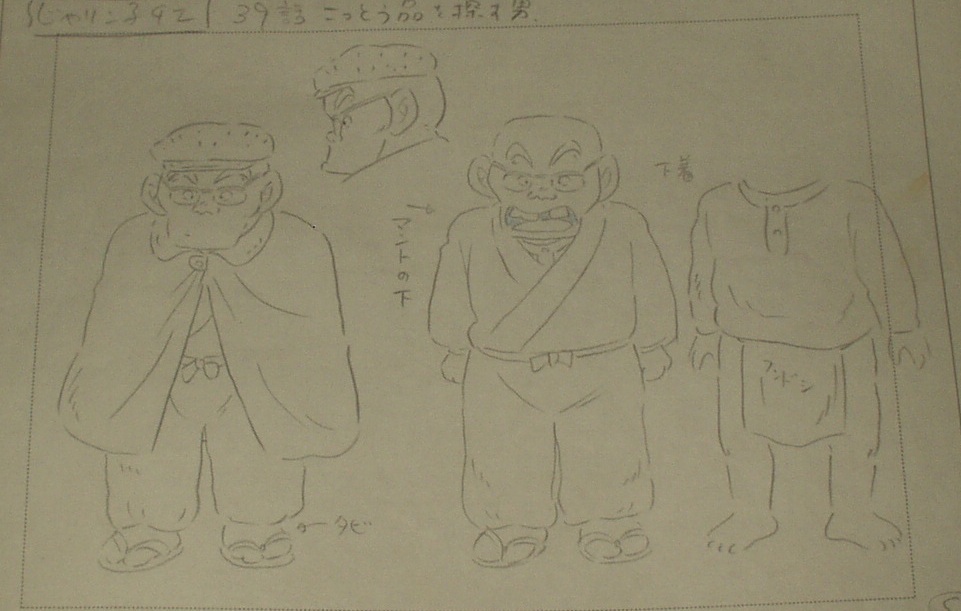 じゃりン子チエ 39話 こっとう品を探す男
下着
マントの下
フンドシ
タビ